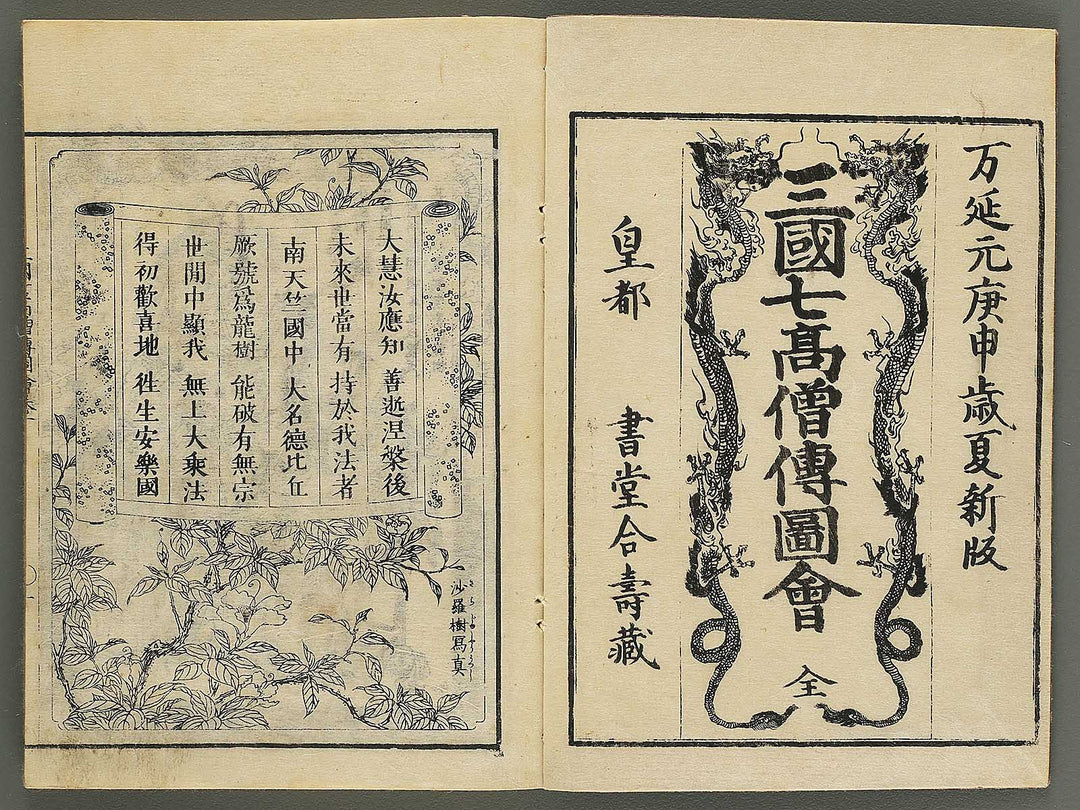 万延元庚申歳夏新版
三國七髙僧傳圖會
全
皇都 書堂合壽藏
大慧汝應知 善逝涅槃後
未來世當有 持於我法者
南天竺國中 大名德比丘
厥號爲龍樹 能破有無宗
世間中顯我 無上大乘法
得初歡喜地 徃生安樂國
沙羅樹寫真